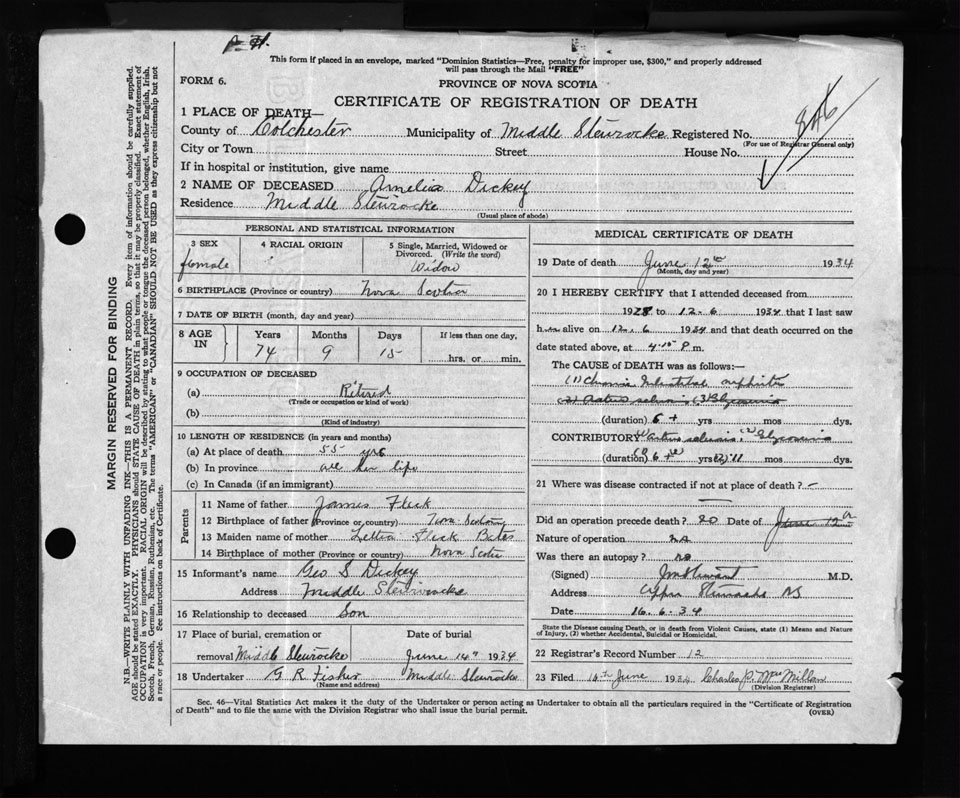 This form if placed in an envelope, marked "Dominion Statistics—Free, penalty for improper use, $300," and properly addressed
will pass through the Mail "FREE"
FORM 6.
PROVINCE OF NOVA SCOTIA
CERTIFICATE OF REGISTRATION OF DEATH
846
1 PLACE OF DEATH—
County of Colchester Municipality of Middle Stewiacke Registered No.
(For use of Registrar General only)
City or Town Street House No.
If in hospital or institution, give name
2 NAME OF DECEASED Amelia Dickey
Residence Middle Stewiacke
(Usual place of abode)
PERSONAL AND STATISTICAL INFORMATION
3 SEX 4 RACIAL ORIGIN 5 Single, Married, Widowed or
Divorced. (Write the word)
female Widow
6 BIRTHPLACE (Province or country) Nova Scotia
7 DATE OF BIRTH (month, day and year)
8 AGE IN Years Months Days If less than one day,
74 9 15 hrs. or min.
9 OCCUPATION OF DECEASED
(a) Retired
(Trade or occupation or kind of work)
(b)
(Kind of industry)
10 LENGTH OF RESIDENCE (in years and months)
(a) At place of death 55 yrs
(b) In province all her life
(c) In Canada (if an immigrant)
Parents
11 Name of father James Fleck
12 Birthplace of father (Province or country) Nova Scotia
13 Maiden name of mother Fleck Bates
14 Birthplace of mother (Province or country) Nova Scotia
15 Informant's name Geo S Dickey
Address Middle Stewiacke
16 Relationship to deceased Son
17 Place of burial, cremation or Date of burial
removal Middle Stewiacke June 14th 1934
18 Undertaker G R Fisher Middle Stewiacke
(Name and address)
MEDICAL CERTIFICATE OF DEATH
19 Date of death June 12th 1934
(Month, day and year)
20 I HEREBY CERTIFY that I attended deceased from
1928 to 12.6 1934 that I last saw
her alive on 12.6 1934 and that death occurred on
date stated above, at 4.15 P. m.
The CAUSE of DEATH was as follows:—
(1) Chronic Interstitial nephritis
(duration) 6+ yrs mos dys.
CONTRIBUTORY
(duration) 6+ yrs mos dys.
21 Where was disease contracted if not at place of death? —
Did an operation precede death? no Date of June 12th
Nature of operation
Was there an autopsy? no
(Signed) M.D.
Address Upper Stewiacke NS
Date 16.6.34
State the Disease causing Death, or in death from Violent Causes, state (1) Means and
Nature of Injury, (2) whether Accidental, Suicidal or Homicidal.
22 Registrar's Record Number 12
23 Filed 16th June 1934 Charles P. MacMillan
(Division Registrar)
Sec. 46—Vital Statistics Act makes it the duty of the Undertaker or person acting as Undertaker to obtain all the particulars required in the "Certificate of Registration
of Death" and to file the same with the Division Registrar who shall issue the burial permit.
(OVER)
MARGIN RESERVED FOR BINDING
N.B.—WRITE PLAINLY WITH UNFADING INK—THIS IS A PERMANENT RECORD. Every item of information should be carefully supplied.
AGE should be stated EXACTLY. PHYSICIANS should STATE CAUSE OF DEATH in plain terms, so that it may be properly classified. Exact statement of
OCCUPATION is very important. RACIAL ORIGIN will be described by stating to what people or tongue the deceased person belonged, whether English, Irish,
Scotch, French, German, Russian, Ruthenian, etc. The terms "AMERICAN" or "CANADIAN" SHOULD NOT BE USED as they express citizenship but not
a race or people. See instructions on back of Certificate.